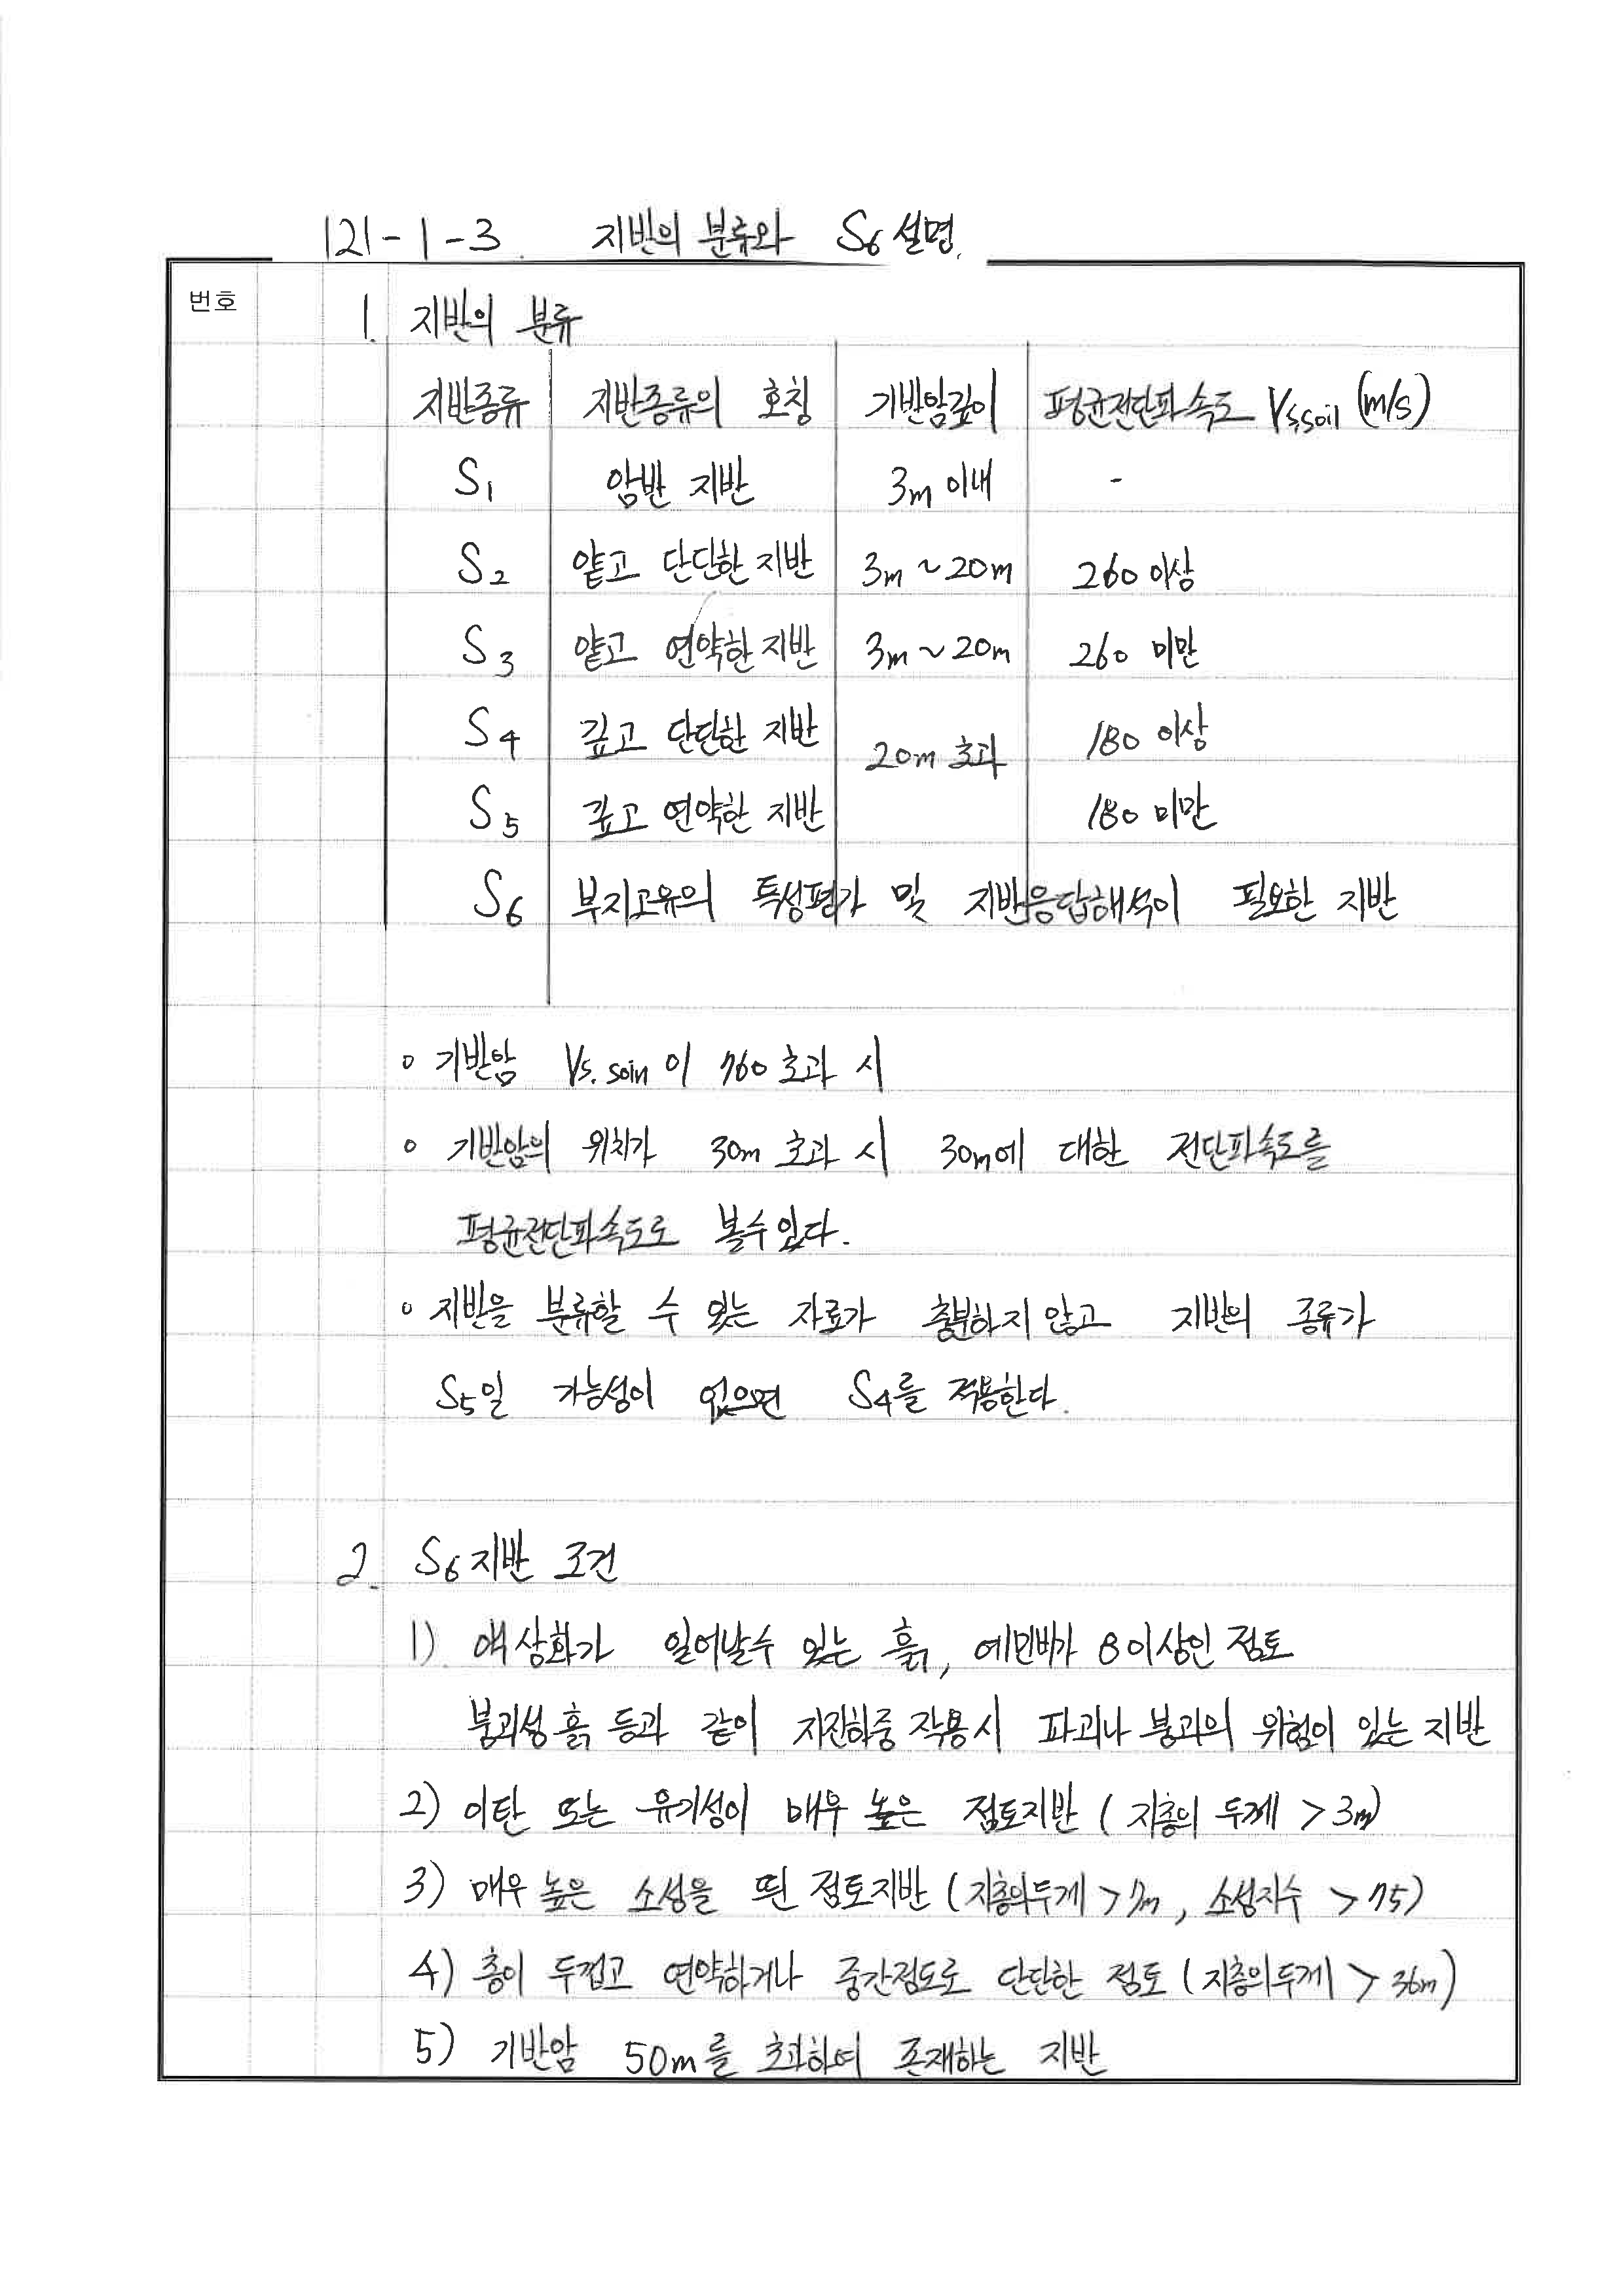 121-1-3. 지반의 분류와 S6 설명.
번호
1. 지반의 분류
지반종류 지반종류의 호칭 기반암깊이 평균전단파속도 Vs,soil (m/s)
S1 암반 지반 3m 이내 -
S2 얕고 단단한 지반 3m ~ 20m 260 이상
S3 얕고 연약한 지반 3m ~ 20m 260 미만
S4 깊고 단단한 지반 20m 초과 180 이상
S5 깊고 연약한 지반 180 미만
S6 부지고유의 특성평가 및 지반응답해석이 필요한 지반
o 기반암 Vs.soin이 760 초과 시
o 기반암의 위치가 30m 초과 시 30m에 대한 전단파속도를
평균전단파속도로 볼수있다.
o 지반을 분류할 수 있는 자료가 충분하지 않고 지반의 종류가
S5일 가능성이 없으면 S4를 적용한다.
2. S6 지반 조건
1) 액상화가 일어날수 있는 흙, 예민비가 8이상인 점토
붕괴성 흙 등과 같이 지진하중 작용시 파괴나 붕괴의 위험이 있는 지반
2) 이탄 또는 유기성이 매우 높은 점토지반 (지층의 두께 > 3m)
3) 매우 높은 소성을 띈 점토지반 (지층의두께 > 7m, 소성지수 > 75)
4) 층이 두껍고 연약하거나 중간정도로 단단한 점토 (지층의두께 > 36m)
5) 기반암 50m를 초과하여 존재하는 지반